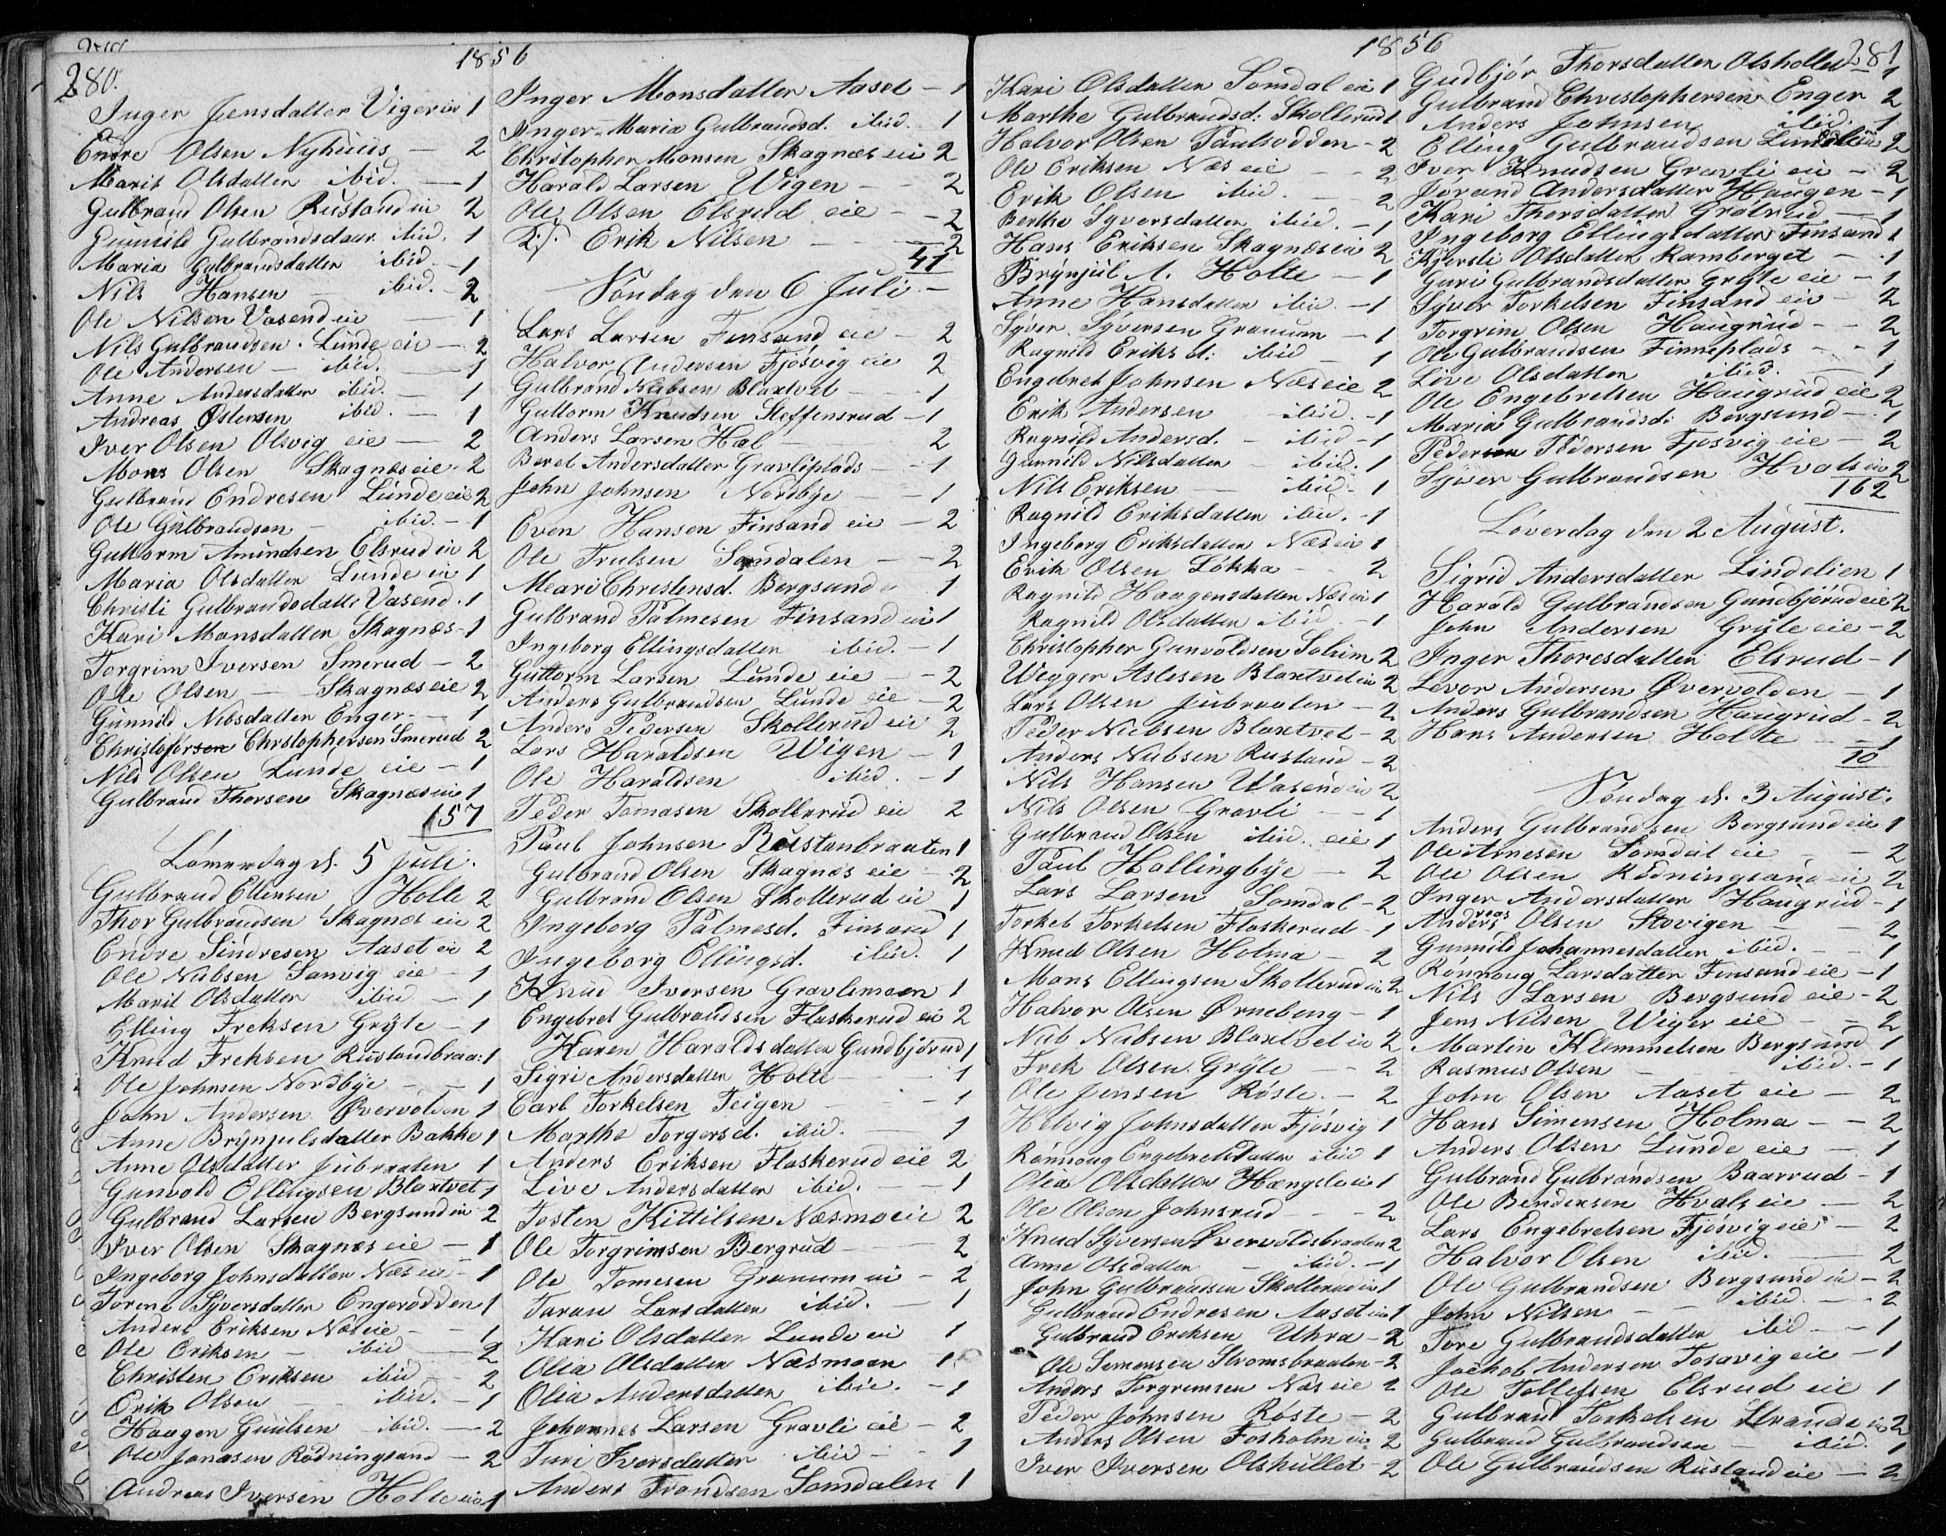 280.
1856
Inger Jensdatter Viger eie 1
Endre Olsen Nyhuus - 2
Marit Olsdatter ibid. - 1
Gulbrand Olsen Rustand eie 2
Gunnild Gulbrandsdatr. ibid. 1
Maria Gulbrandsdatter ibid. - 1
Nils Hansen - ibid. - 2
Ole Nilsen Vasend eie - 1
Nils Gulbrandsen Lunde eie - 2
Ole Andersen - ibid. - 1
Anne Andersdatter ibid. - 1
Andreas Østensen ibid. - 1
Iver Olsen Olsvig eie - 2
Mons Olsen Skagnæs eie - 2
Gulbrand Endresen Lunde eie 2
Ole Gulbrandsen - ibid. - 1
Guttorm Amundsen Elsrud eie 2
Maria Olsdatter Lunde eie 1
Christi Gulbrandsdattr Vasend. 1
Kari Monsdatter Skagnæs - 1
Torgrim Iversen Smerud - 2
Ole Olsen - Skagnæs eie 2
Gunnild Nilsdatter Enger - 1
Christofersen Christophersen Smerud 2
Nils Olsen Lunde eie - 1
Gulbrand Thorsen Skagnæs eie 1
157
Løverdag d. 5 Juli.
Gulbrand Ellensen Holte 2
Thor Gulbrandsen Skagnæs eie 2
Endre Sindresen Aaset eie 2
Ole Nubsen Sanvig eie - 1
Marit Olsdatter ibid - 1
Elling Freksen Gryte - 1
Knud Freksen Rustandbraa: 1
Ole Johnsen Nordbye - 1
John Andersen Øvervolden 1
Anne Brynjulsdatter Bakke 1
Anne Olsdatter Jubraaten 1
Gunvold Ellingsen Blaxtvet 1
Gulbrand Larsen Bergsund eie 2
Iver Olsen Skagnæs eie - 1
Ingeborg Johnsdatter Næs eie - 1
Torene Syversdatter Engerodden 1
Anders Eriksen Næs eie - 1
Ole Eriksen - ibid - 2
Christen Eriksen ibid - 2
Erik Olsen - ibid. - 1
Haagen Guulsen ibid. - 2
Ole Jonasen Rødningsand - 2
Andreas Iversen Holte eie 1
Inger Monsdatter Aaset - 1
Inger Maria Gulbrandsd. ibid. - 1
Christopher Monsen Skagnæs eie 2
Harald Larsen Wigen - 2
Ole Olsen Elsrud eie - 2
Erik Nilsen - 2
41
Søndag den 6 Juli -
Lars Larsen Finsand eie 2
Halvor Andersen Fjøsvig eie 2
Gulbrand Nubsen Blaxtvet - 1
Guttorm Knudsen Steffensrud - 1
Anders Larsen Hal - 2
Beret Andersdatter Gravliplads - 1
John Johnsen Nordbye - 1
Even Hansen Finsand eie - 2
Ole Trulsen Somdalen - 2
Meari Christensd. Bergsund - 1
Gulbrand Palmesen Finsand eie 1
Ingeborg Ellingsdatter ibid. - 1
Guttorm Larsen Lunde eie - 2
Anders Gulbrandsen Lunde eie - 2
Anders Pedersen Skollerud eie 2
Lars Haraldsen Wigen - 1
Ole Haraldsen ibid. - 1
Peder Tomasen Skollerud eie 2
Paul Johnsen Rustanbraaten 1
Gulbrand Olsen Skagnæs eie - 2
Gulbrand Olsen Skollerud eie 1
Ingeborg Palmesd. Finsand 1
Ingeborg Ellingsd. ibid. 1
Knud Iversen Gravlimoen 1
Engebret Gulbrandsen Flaskerud eie 2
Karen Haraldsdatter Gundbjørud 1
Sigri Andersdatter Holte - 1
Carl Torkelsen Teigen - 1
Marthe Torgersd. ibid. 1
Anders Eriksen Flaskerud eie 2
Live Andersdatter ibid. - 1
Tosten Kittilsen Næsmo eie 2
Ole Torgrimsen Bergrud - 2
Ole Tomesen Granum eie - 2
Taran Larsdatter ibid. - 1
Kari Olsdatter Lunde eie 1
Olea Olsdatter Næsmoen 1
Olia Andersdatter ibid. - 1
Johannes Larsen Gravli eie - 2
Turi Iversdatter ibid - 1
Anders Trondsen Somdalen 1
1856
281
Kari Olsdatter Somdal eie 1
Marthe Gulbrandsd: Skollerud 1
Halvor Olsen Paulsodden - 2
Ole Eriksen Næs eie - 2
Erik Olsen ibid. - 2
Berthe Syversdatter ibid. - 1
Hans Eriksen Skagnæs eie 2
Brynjul A. Holte - 1
Anne Hansdatter ibid - 1
Syver Syversen Granum - 1
Ragnild Eriksd: ibid - 1
Engebret Johnsen Næs eie 2
Erik Andersen ibid. - 1
Ragnild Andersd. - ibid - 1
Gunnild Nilsdatter - ibid. 1
Nils Eriksen - ibid - 1
Ragnild Eriksdatter ibid. - 1
Ingeborg Eriksdatter Næs eie 1
Erik Olsen Løkka - 2
Ragnild Haagensdatter Næs eie 1
Ragnild Olsdatter ibid - 1
Christopher Gunvoldsen Solum 2
Wegger Aslesen Blaxtvet eie 2
Lars Olsen Jubraaten - 2
Peder Nubsen Blaxtvet - 2
Anders Nubsen Rustand - 2
Nils Hansen Wasend eie 2
Nils Olsen Gravli - 1
Gulbrand Olsen ibid. eie 1
Paul Hallingbye - 2
Lars Larsen Somdal - 2
Torkel Torkelsen Flaskerud - 1
Knud Olsen Holma - 2
Mons Ellingsen Skollerud eie 2
Halvor Olsen Ørneberg - 1
Nub Nubsen Blaxtvet eie 2
Frek Olsen Gryte - 2
Ole Jensen Røste. - 2
Helvig Johnsdatter Fjøsvig 1
Rønnoug Engebretsdatter ibid 1
Olea Olsdatter Hængsle eie 1
Ole Olsen Johnsrud - 2
Knud Syversen Øvervoldsbraaten 2
Anne Olsdatter - ibid. - 1
John Gulbrandsen Skollerud eie 1
Gulbrand Endresen Aaset eie 1
Gulbrand Ericksen Uhra - 2
Ole Simensen Stromsbraaten - 2
Anders Torgrimsen Næs eie 2
Peder Johnsen Røste - 2
Anders Olsen Fosholm eie - 2
Iver Iversen Olshullet - 2
Gudbjør Thorsdatter Olshullet 1
Gulbrand Christophersen Enger 2
Anders Johnsen ibid. 1
Elling Gulbrandsen Lundlie eie 2
Iver Knudsen Gravli eie - 2
Jorand Andersdatter Haugen - 1
Kari Thorsdatter Grøtrud - 1
Ingeborg Ellingsdatter Finsand 1
Kjersti Olsdatter Ramberget - 1
Guri Gulbrandsdatter Gryte eie - 1
Syver Torkelsen Finsand eie - 2
Torgrim Olsen Haugrud - 2
Ole Gulbrandsen Finneplads - 1
Live Olsdatter ibid. - 1
Ole Engebretsen Haugrud eie 2
Maria Gulbrandsd: Bergsund - 1
Pedersen Pedersen Fjøsvig eie - 2
Syver Gulbrandsen Hvals eie 2
162
Løverdag den 2 August.
Sigrid Andersdatter Lindelien 1
Harald Gulbrandsen Gundbjørud eie 2
John Andersen Gryte eie - 2
Inger Thoresdatter Elsrud - 1
Levor Andersen Øvervolden - 1
Anders Gulbrandsen Haugrud - 2
Hans Andersen Holte - 1
10
Søndag d. 3 August.
Anders Gulbrandsen Bergsund eie 1
Ole Arnesen Somdal eie - 2
Ole Olsen Rødningsand eie 2
Inger Andersdatter Haugrud - 1
Andreas Olsen Stovigen - 2
Gunnild Johannesdatter ibid. - 1
Rønnoug Larsdatter Finsand eie - 1
Nils Larsen Bergsund eie - 2
Jens Nilsen Wiger eie - 2
Martin Klemmetsen Bergsund 1
Rasmus Olsen - ibid. - 1
John Olsen Aaset eie - 2
Hans Simensen Holma - 2
Anders Olsen Lunde eie - 1
Gulbrand Gulbrandsen Baarrud - 1
Ole Bendersen Hvals eie - 2
Lars Engebretsen Fjøsvig eie - 2
Halvor Olsen ibid. - 2
Ole Gulbrandsen Bergsund eie - 2
John Nilsen - ibid. - 2
Tore Gulbrandsdatter ibid - 1
Jackob Andersen Tosavig eie - 1
Ole Tollefsen Elsrud eie 1
Gulbrand Torkelsen Strande eie 2
Gulbrand Gulbrandsen - ibid. 1
Ole Gulbrandsen Rustand eie - 2